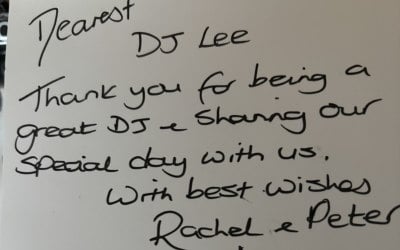 Dearest
DJ Lee
Thank you for being a
great DJ & sharing our
special day with us.
With best wishes
Rachel & Peter